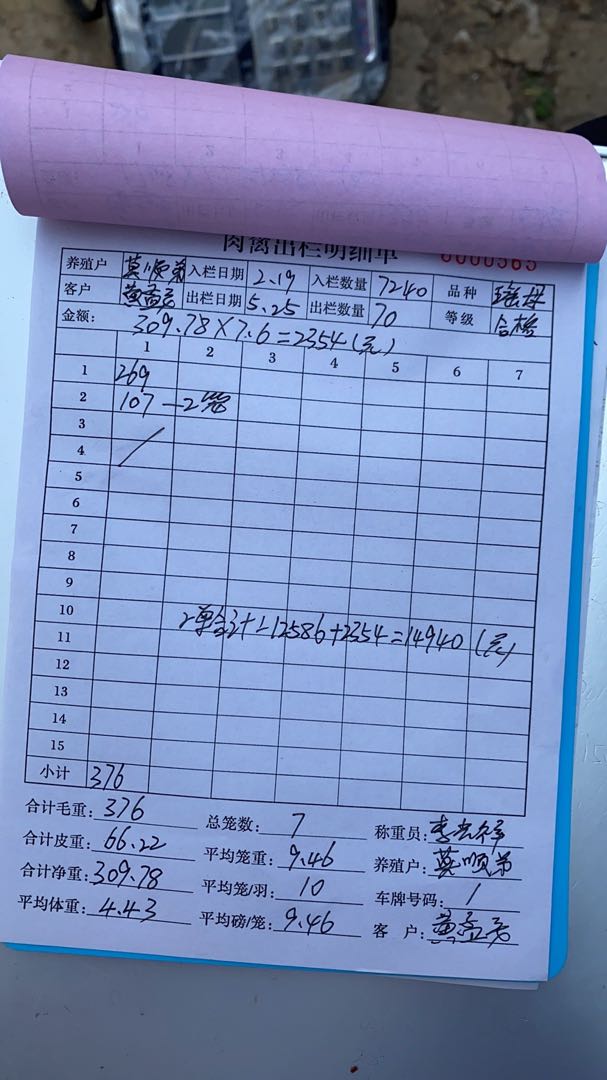 肉禽出栏明细单 0000565
养殖户 莫顺弟 入栏日期 2.19 入栏数量 7240 品种 瑶母
客户 出栏日期 5.25 出栏数量 70 等级 合格
金额: 309.78×7.6=2354(元)
1 2 3 4 5 6 7
1 269
2 107 —2笼
3
4
5
6
7
8
9
10
2单合计=12586+2354=14940(元)
11
12
13
14
15
小计 376
合计毛重: 376 总笼数: 7 称重员:
合计皮重: 66.22 平均笼重: 9.46 养殖户: 莫顺弟
合计净重: 309.78 平均笼/羽: 10 车牌号码: /
平均体重: 4.43 平均磅/笼: 9.46 客 户: